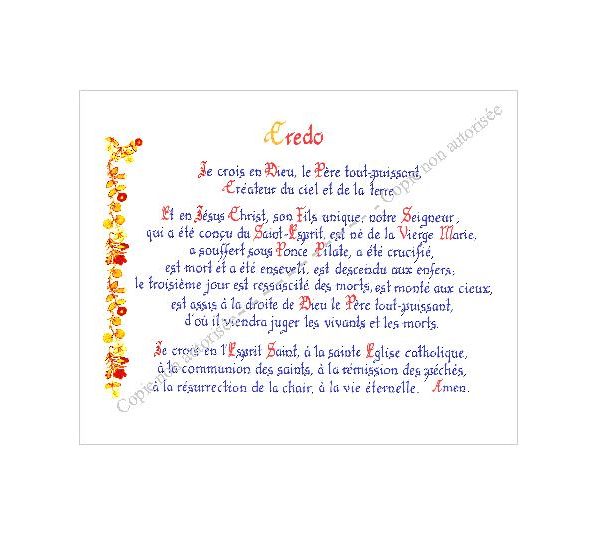 Credo
Je crois en Dieu, le Père tout-puissant,
Créateur du ciel et de la terre
Et en Jésus Christ, son Fils unique, notre Seigneur,
qui a été conçu du Saint-Esprit, est né de la Vierge Marie,
a souffert sous Ponce Pilate, a été crucifié,
est mort et a été enseveli, est descendu aux enfers;
le troisième jour est ressuscité des morts, est monté aux cieux,
est assis à la droite de Dieu le Père tout-puissant,
d'où il viendra juger les vivants et les morts.
Je crois en l'Esprit Saint, à la sainte Eglise catholique,
à la communion des saints, à la rémission des péchés,
à la résurrection de la chair, à la vie éternelle. Amen.
Copie non autorisée - - - - - - - Copie non autorisée